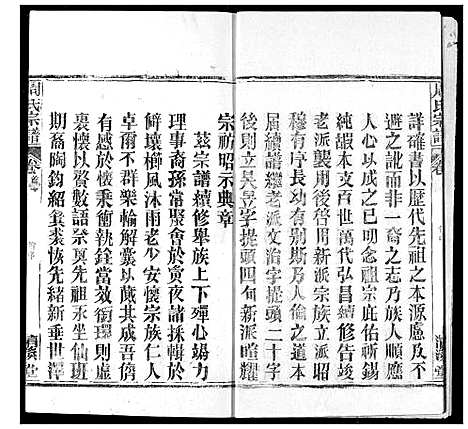 周氏宗譜
詳確書以歷代先祖之本源慮及不
避之訛而非一裔之志乃族人順應
人心以成之一念祖宗庇佑祈錫
純嘏百世萬代弘昌續修啟
老派襲用後啓用新派宗族立派昭
穆有序長幼有別斯乃人倫之道本
屆續譜繼老派文治字提頭二十字
後則立昊字提頭四句新派暄耀
宗祊昭示典章
茲宗譜續修舉族上下殫心竭力
理事裔孫常聚會於寅夜諸採輯於
僻壤櫛風沐雨老少安懷宗族仁人
卓爾不群樂輸解囊以蕆其成吾儕
有感於懷乘衛執銓當效銜環則虛
裏懷以贅數語祭奠先祖永坐仙班
期裔陶鈞紹箕裘恢先緒新垂世澤
周氏宗譜
堂